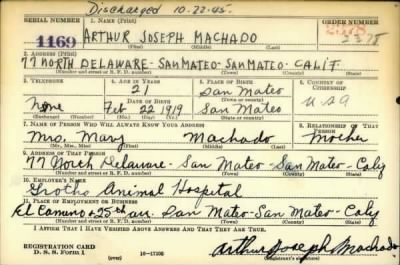 Discharged 10-22-45.
SERIAL NUMBER 1. NAME (Print) ORDER NUMBER
1169 ARTHUR JOSEPH MACHADO 2378
(First) (Middle) (Last) 2378
2. ADDRESS (Print)
77 NORTH DELAWARE - SAN MATEO - SAN MATEO - CALIF.
(Number and street or R. F. D. number) (Town) (County) (State)
3. TELEPHONE 4. AGE IN YEARS 5. PLACE OF BIRTH 6. COUNTRY OF CITIZENSHIP
21 San Mateo
DATE OF BIRTH (Town or county)
None Feb 22 1919 San Mateo U S A
(Exchange) (Number) (Mo.) (Day) (Yr.) (State or country)
7. NAME OF PERSON WHO WILL ALWAYS KNOW YOUR ADDRESS 8. RELATIONSHIP OF THAT PERSON
Mrs. Mary Machado Mother
(Mr., Mrs., Miss) (First) (Middle) (Last)
9. ADDRESS OF THAT PERSON
77 North Delaware - San Mateo - San Mateo - Calif
(Number and street or R. F. D. number) (Town) (County) (State)
10. EMPLOYER'S NAME
Animal Hospital
11. PLACE OF EMPLOYMENT OR BUSINESS
El Camino & 25th av. San Mateo - San Mateo - Calif
(Number and street or R. F. D. number) (Town) (County) (State)
I AFFIRM THAT I HAVE VERIFIED ABOVE ANSWERS AND THAT THEY ARE TRUE.
REGISTRATION CARD
D. S. S. Form 1 (over) 16-17105 Arthur Joseph Machado
(Registrant's signature)